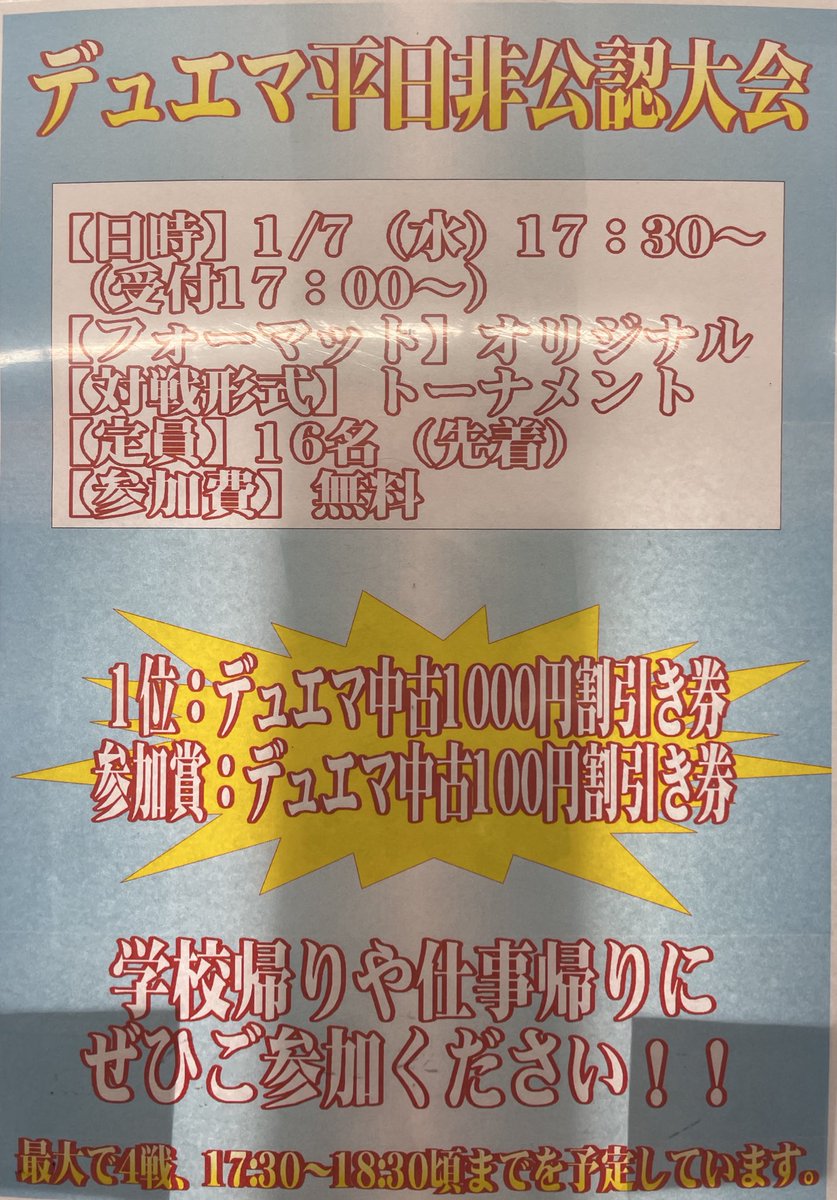 デュエマ平日非公認大会
【日時】1/7（水）17：30～
（受付17：00～）
【フォーマット】オリジナル
【対戦形式】トーナメント
【定員】16名（先着）
【参加費】無料
1位：デュエマ中古1000円割引き券
参加賞：デュエマ中古100円割引き券
学校帰りや仕事帰りに
ぜひご参加ください！！
最大で4戦、17:30～18:30頃までを予定しています。